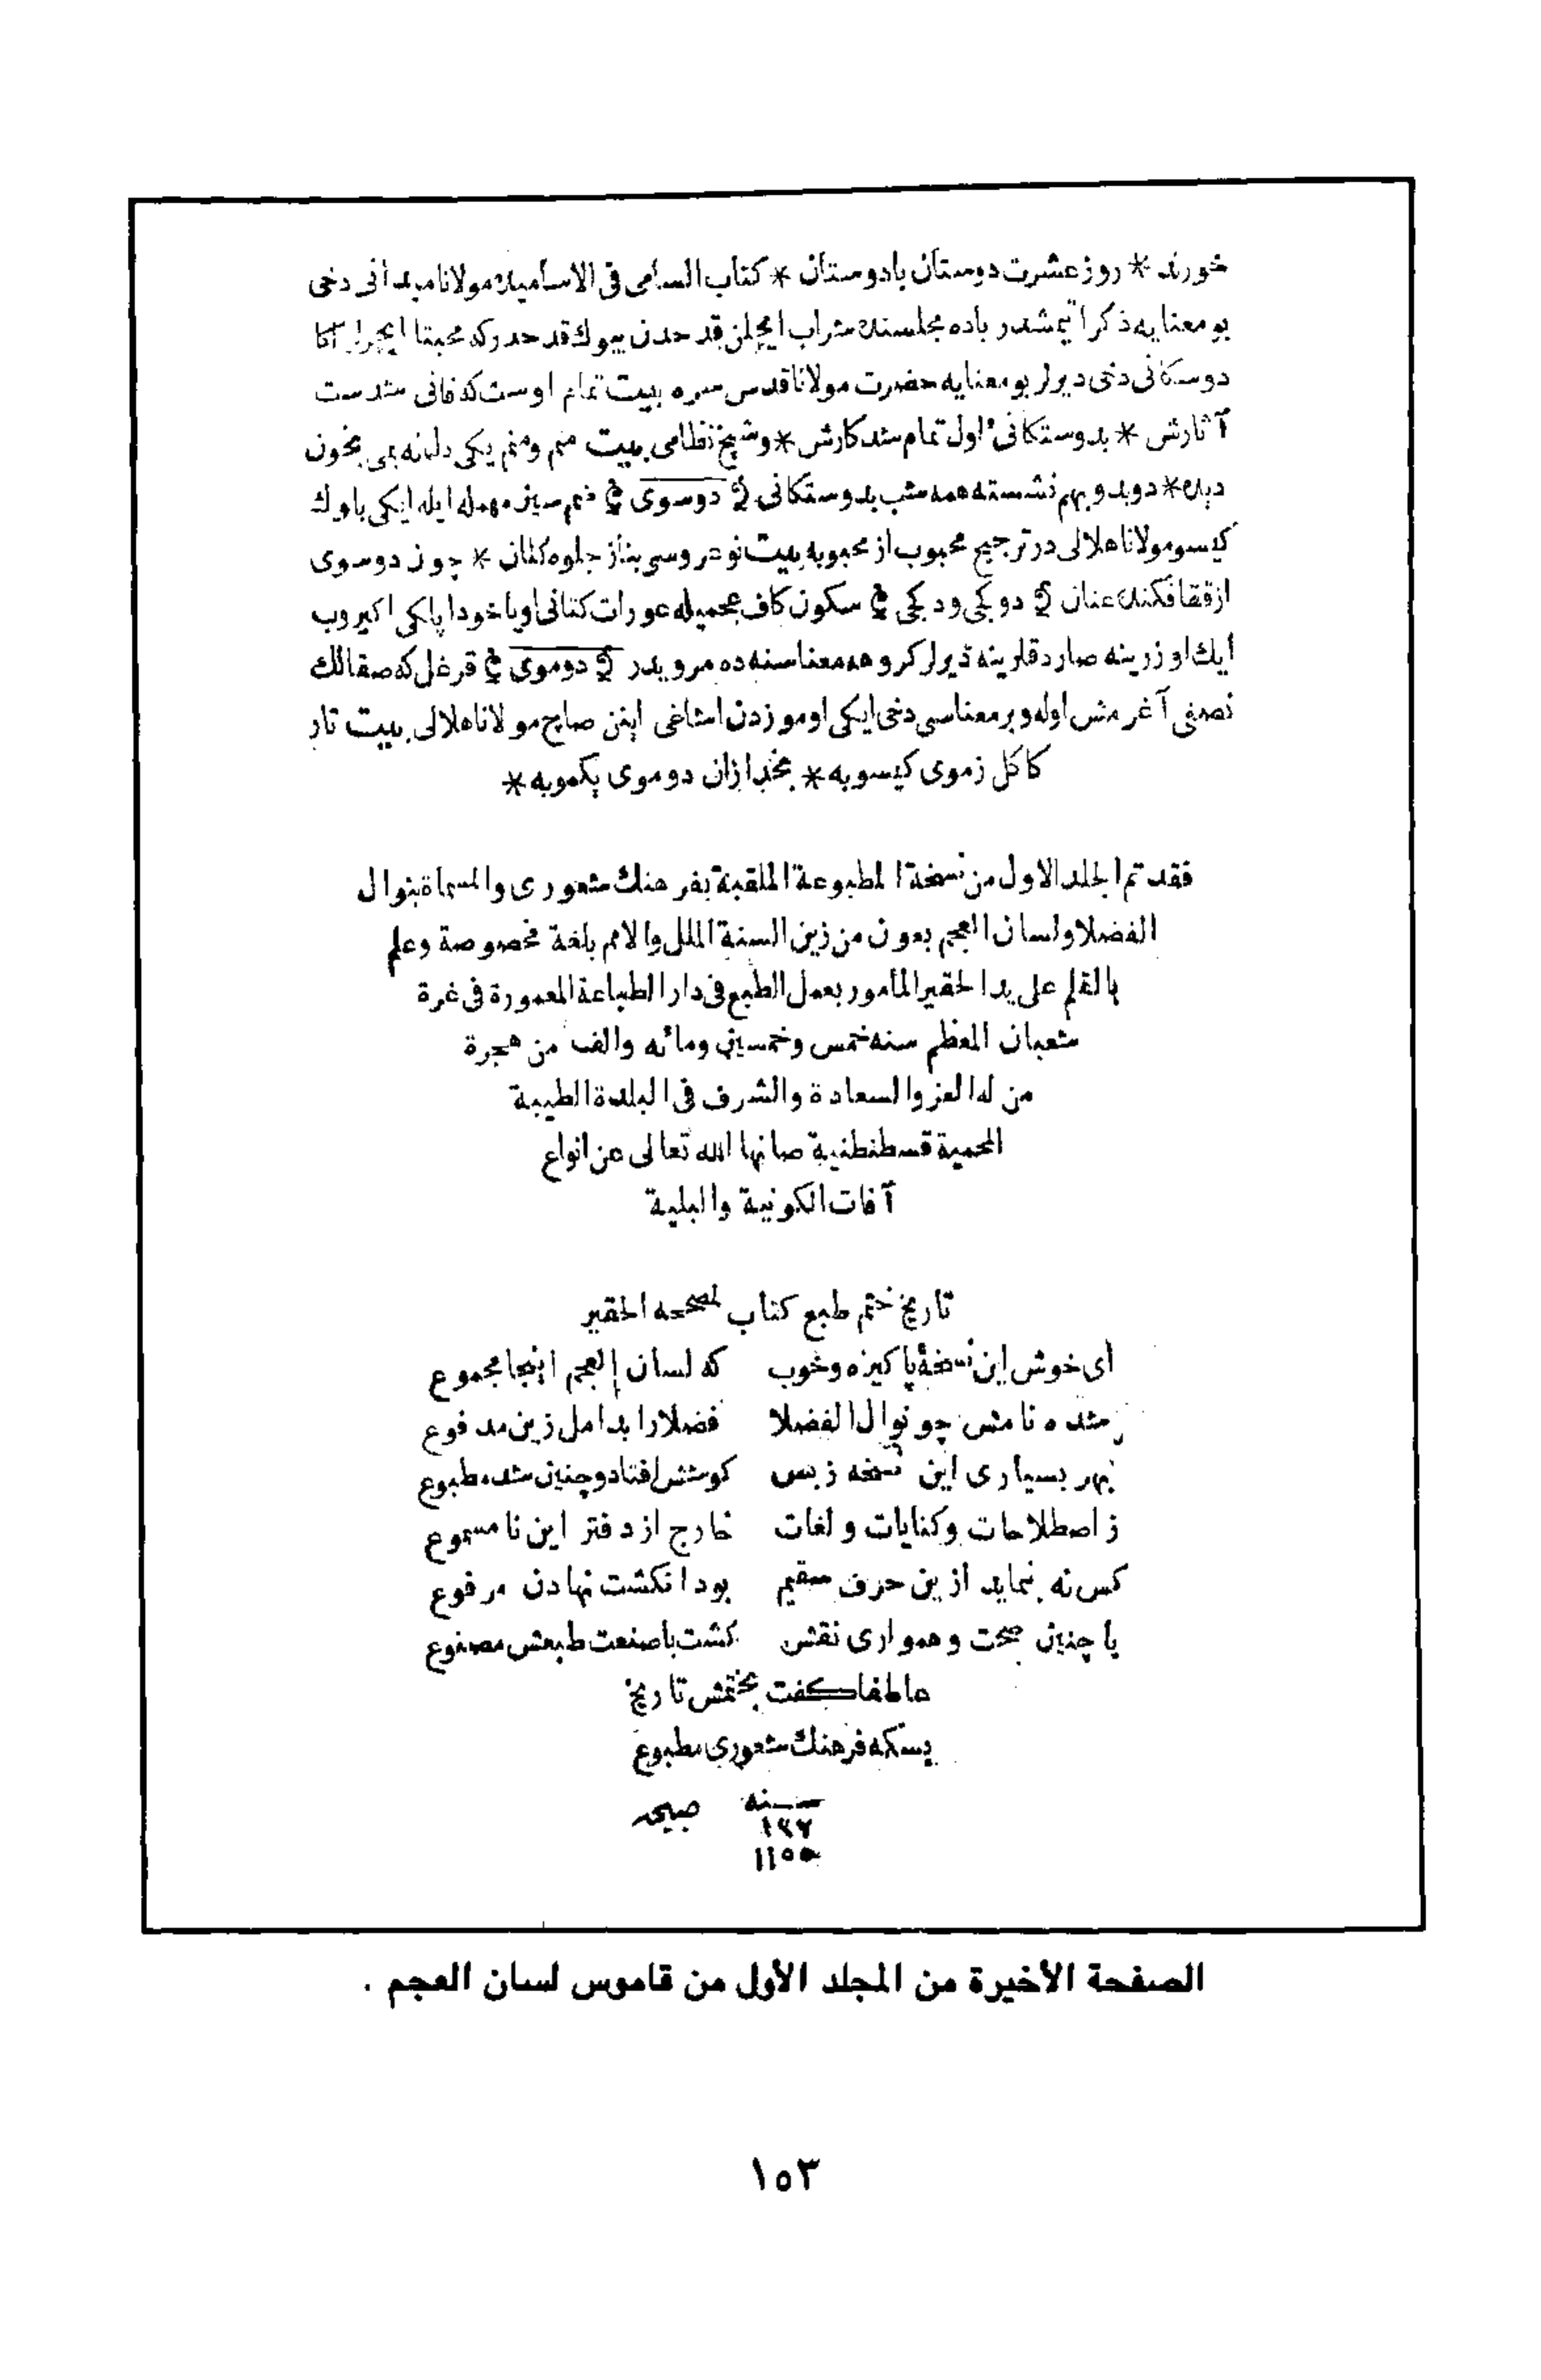 خورند * روز عشرت دوستان بادوستان * کتاب السامی فی الاسامیده مولانا میدانی دخی
بو معنایه ذکر ایتمشدر باده مجلسنده شراب ایچیلن قدحدن بیوك قدحدرکه محبتا ایچرلر اکا
دوستکانی دخی دیرلر بو معنایه حضرت مولانا قدس سره بیت تمام اوست که فانی شدست
آثارش * بدوستکانئ اول تمام شد کارش * وشیخ نظامی بیت منم ومنم یکی دلمانه بمی بخون
دیده * دوبدو بهم نشسته همه شب بدوستکانی دوسوی ضم سین مهمله ایله ایکی بلوك
کیسو مولانا هلالی در ترجیح محبوب از محبوبه بیت نوعروسی بناز جلوه کنان * چون دوسوی
ازقفا فکنده عنان دوکچی ودکچی سکون کاف عجمیله عورات کتانی اویاخود ایپلکی اکیروب
ایك اوزرینه صاردقلرینه دیرلر کروهه معناسنه ده مرویدر دوموی قرغل که صقالك
نصفی آغرمش اوله وبر معناسی دخی ایکی اوموزدن اشاغی اینن صاچ مولانا هلالی بیت تار
کاکل زموی کیسو به * بخدا زان دوموی یکمو به *
فقد تم الجلد الاول من نسخة المطبوعة الملقبة بفرهنك شعوری والمسماة بنوال
الفضلا ولسان العجم بعون من زین السنة الملل والامم بلغة مخصوصة وعلم
بالقلم علی ید الحقیر المأمور بعمل الطبع فی دار الطباعة المعمورة فی غرة
شعبان المعظم سنه خمس وخمسین ومائه والف من هجرة
من له العز والسعادة والشرف فی البلدة الطیبة
المحمیة قسطنطنیة صانها الله تعالی عن انواع
آفات الکونیة والبلیة
تاریخ ختم طبع کتاب لمصححه الحقیر
ای خوش این نسخۀ پاکیزه وخوب که لسان العجم اینجا مجموع
شده نامش چو نوال الفضلا فضلارا بدامل زین مدفوع
بهر بسیاری این نسخه زبس کوشش افتاد وچنین شد مطبوع
ز اصطلاحات وکنایات ولغات خارج از دفتر این نا مسموع
کس نه بنماید ازین حرف سقیم بود انکشت نهادن مرفوع
با چنین صحت وهمواری نقش کشت باصنعت طبعش مصنوع
هاطفا کفت بختمش تاریخ
بسکه فرهنك شعوری مطبوع
سنه
١١٥٥
الصفحة الأخيرة من المجلد الأول من قاموس لسان العجم .
١٥٣